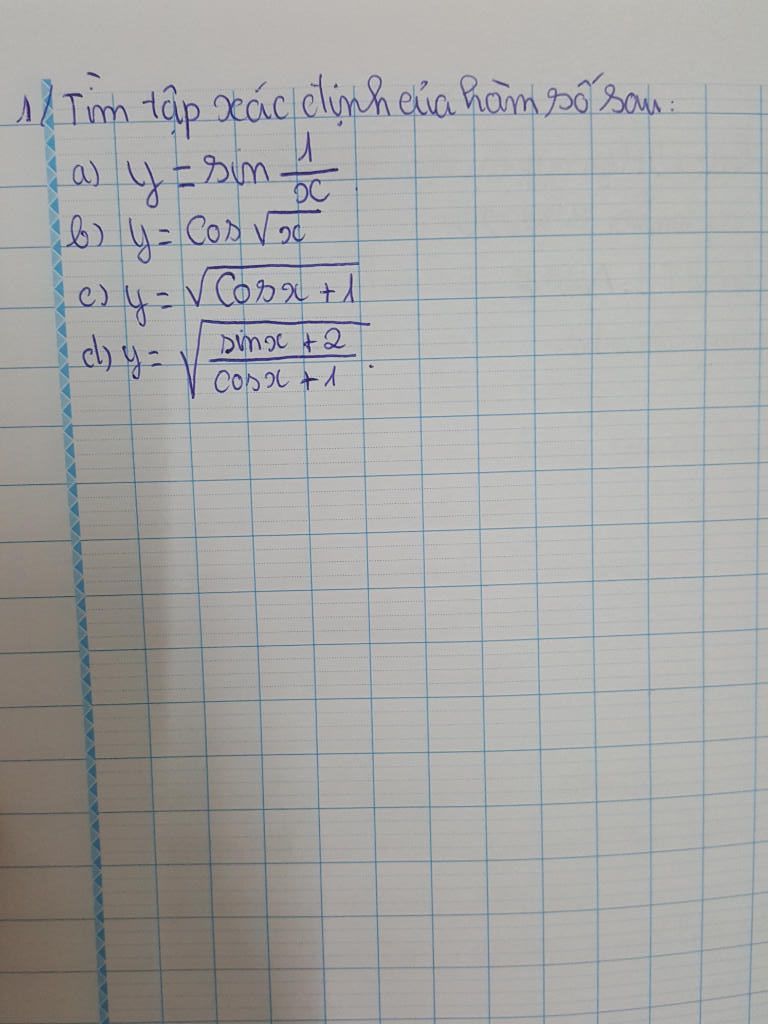 1/ Tìm tập xác định của hàm số sau:
a) y = sin 1/x
b) y = cos √x
c) y = √(cosx + 1)
d) y = √((sinx + 2)/(cosx + 1)).